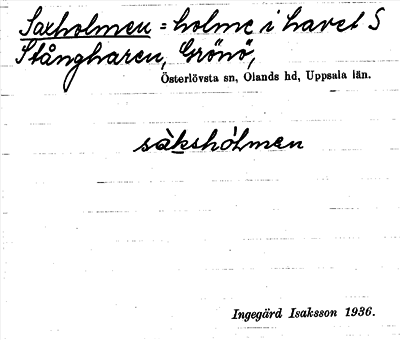 Saxholmen = holme i havet S
Stångharen, Grönö,
Österlövsta sn, Olands hd, Uppsala län.
sàkshólmen
Ingegärd Isaksson 1936.